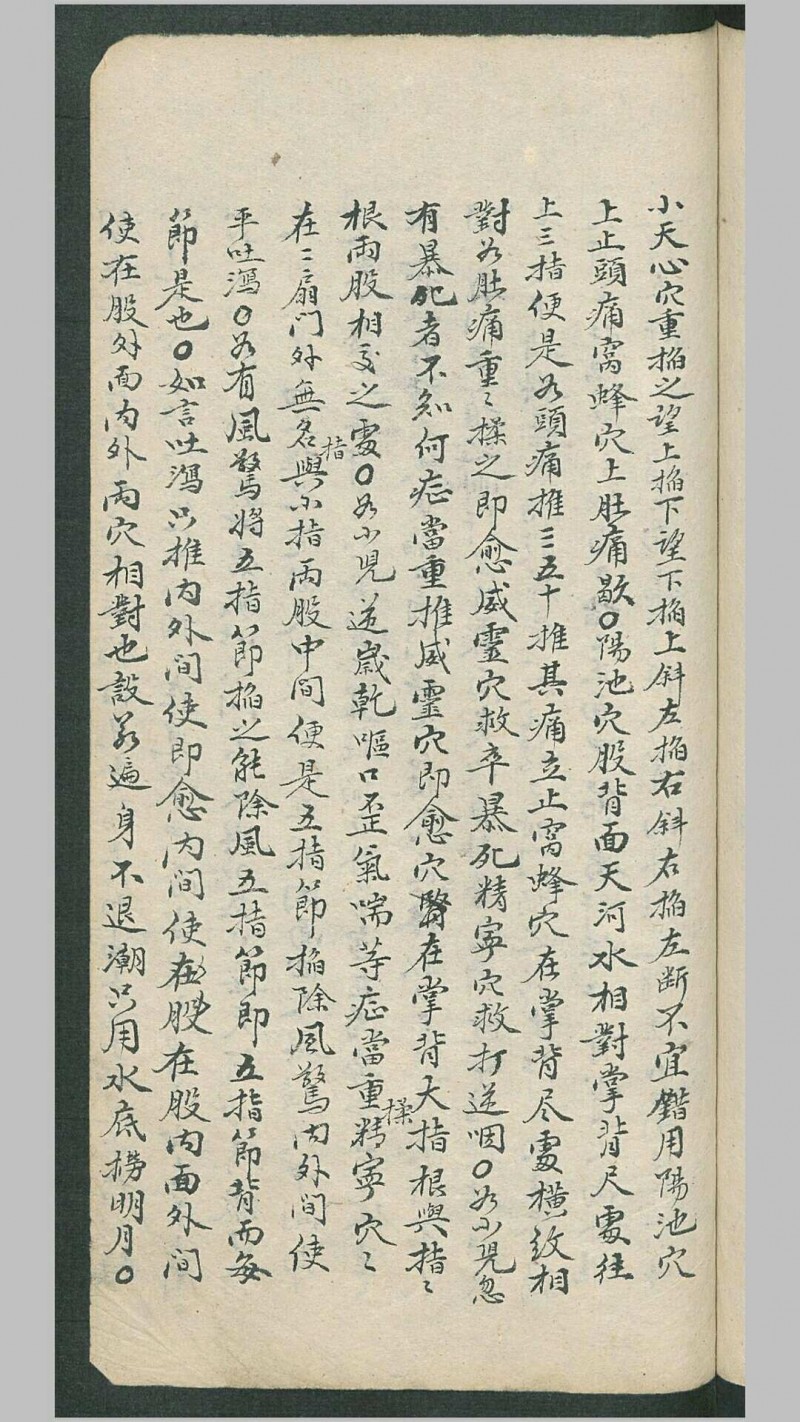 小天心穴重掐之望上掐下望下掐上斜左掐右斜右掐左断不宜錯用陽池穴
上止頭痛窩蜂穴上肚痛歇○陽池穴股背面天河水相對掌背尺䖏徃
上三指便是若頭痛推三五十推其痛立止窩蜂穴在掌背尽䖏橫紋相
對若肚痛重〻揉之即愈威霊穴救卒暴死精寧穴救打逆咽○若小児忽
有暴死者不知何症當重推威霊穴即愈穴在掌背大指根與指〻
根兩股相交之䖏○若小児逆嵗乾嘔口歪氣喘等症當重揉精寧穴〻
在二扇門外無名指與小指兩股中间便是五指節掐除風驚内外间使
平吐瀉○若有風驚將五指節掐之能除風五指節即五指節背而每
節是也○如言吐瀉只推内外间使即愈内间使在股在股内面外间
使在股外面内外兩穴相對也設若遍身不退潮只用水底撈明月○